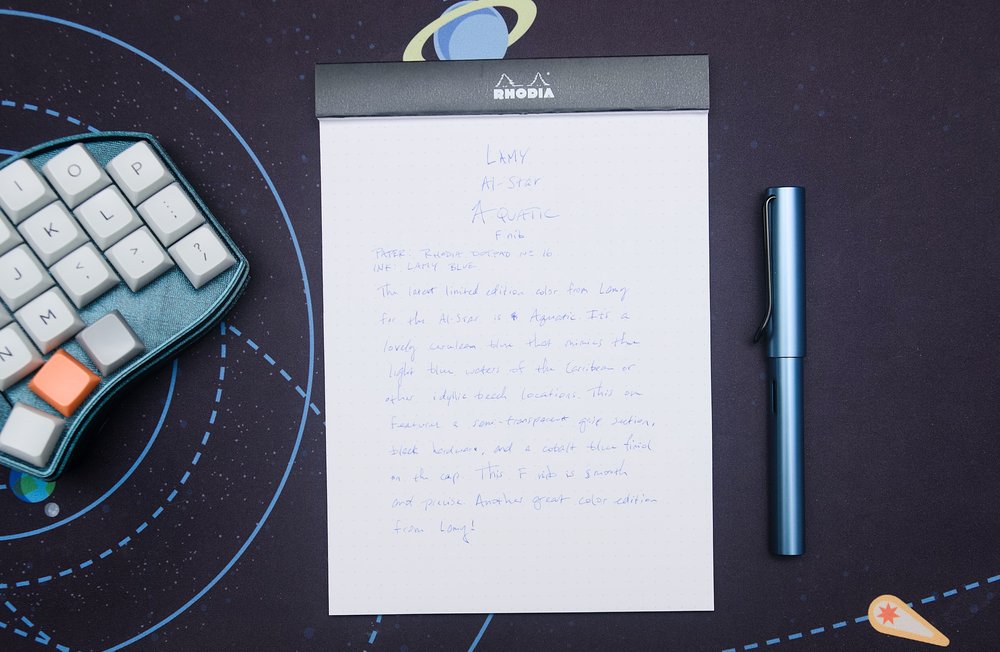 RHODIA
LAMY
Al-Star
AQUATIC
F nib
PAPER: RHODIA DOTPAD No 16
INK: LAMY BLUE
The latest limited edition color from Lamy
for the Al-Star is Aquatic. It's a
lovely cerulean blue that mimics the
light blue waters of the Carribean or
other idyllic beach locations. This one
features a semi-transparent grip section,
black hardware, and a cobalt blue finial
on the cap. This F nib is smooth
and precise. Another great color edition
from Lamy!
I O P
K L : ;
J < , > . ? /
M
N